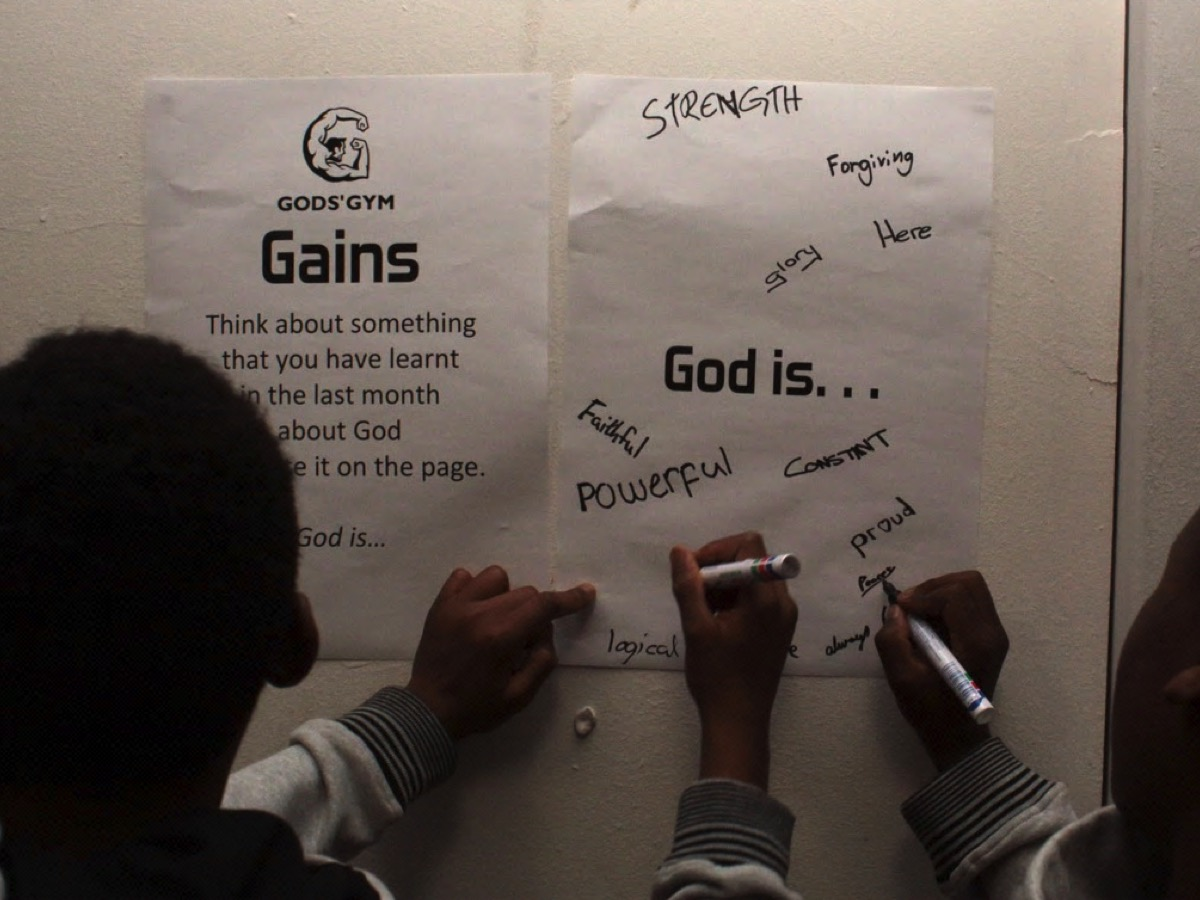 GODS'GYM
Gains
Think about something
that you have learnt
in the last month
about God
se it on the page.
God is...
STRENGTH
Forgiving
Here
glory
God is...
Faithful
Powerful
CONSTANT
proud
logical
always